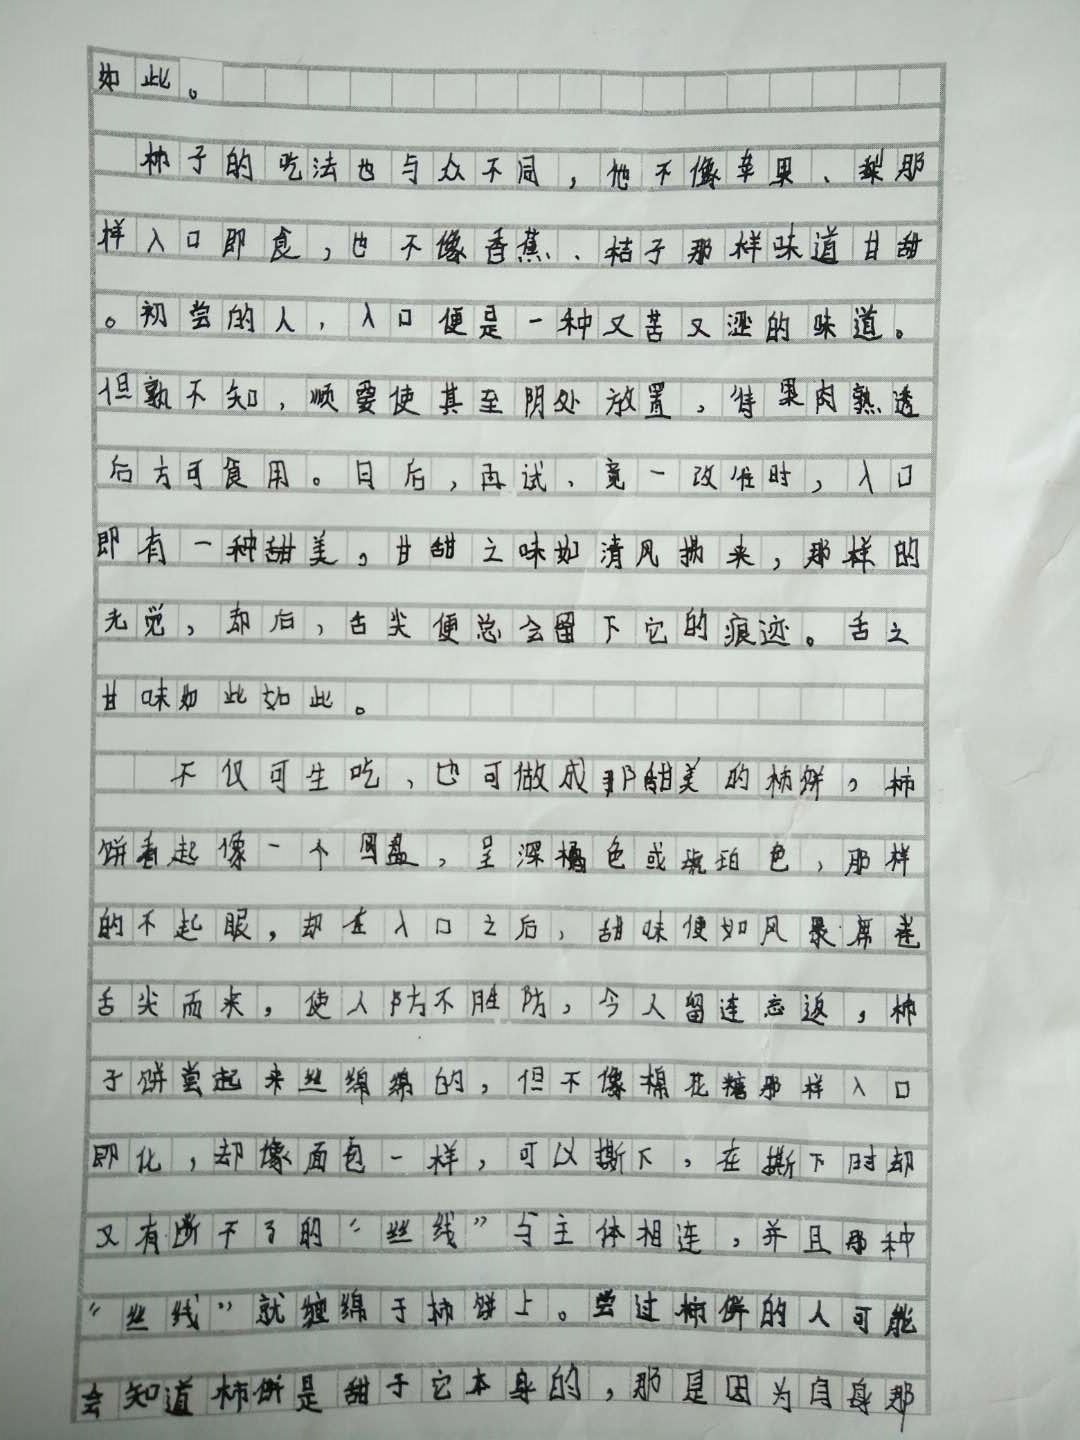 如此。
柿子的吃法也与众不同，他不像苹果、梨那
样入口即食，也不像香蕉、桔子那样味道甘甜
。初尝的人，入口便是一种又苦又涩的味道。
但孰不知，顺要使其至阴处放置，待果肉熟透
后方可食用。日后，再试、竟一改往时，入口
即有一种甜美。甘甜之味如清风拂来，那样的
无觉，却后，舌尖便总会留下它的痕迹。舌之
甘味如此如此。
不仅可生吃，也可做成那甜美的柿饼，柿
饼看起像一个圆盘，呈深橘色或琥珀色，那样
的不起眼，却在入口之后，甜味便如风暴席卷
舌尖而来，使人防不胜防，令人留连忘返，柿
子饼尝起来丝绵绵的，但不像棉花糖那样入口
即化，却像面包一样，可以撕下，在撕下时却
又有断不了的“丝线”与主体相连，并且那种
“丝线”就缠绵于柿饼上。尝过柿饼的人可能
会知道柿饼是甜于它本身的，那是因为自身那